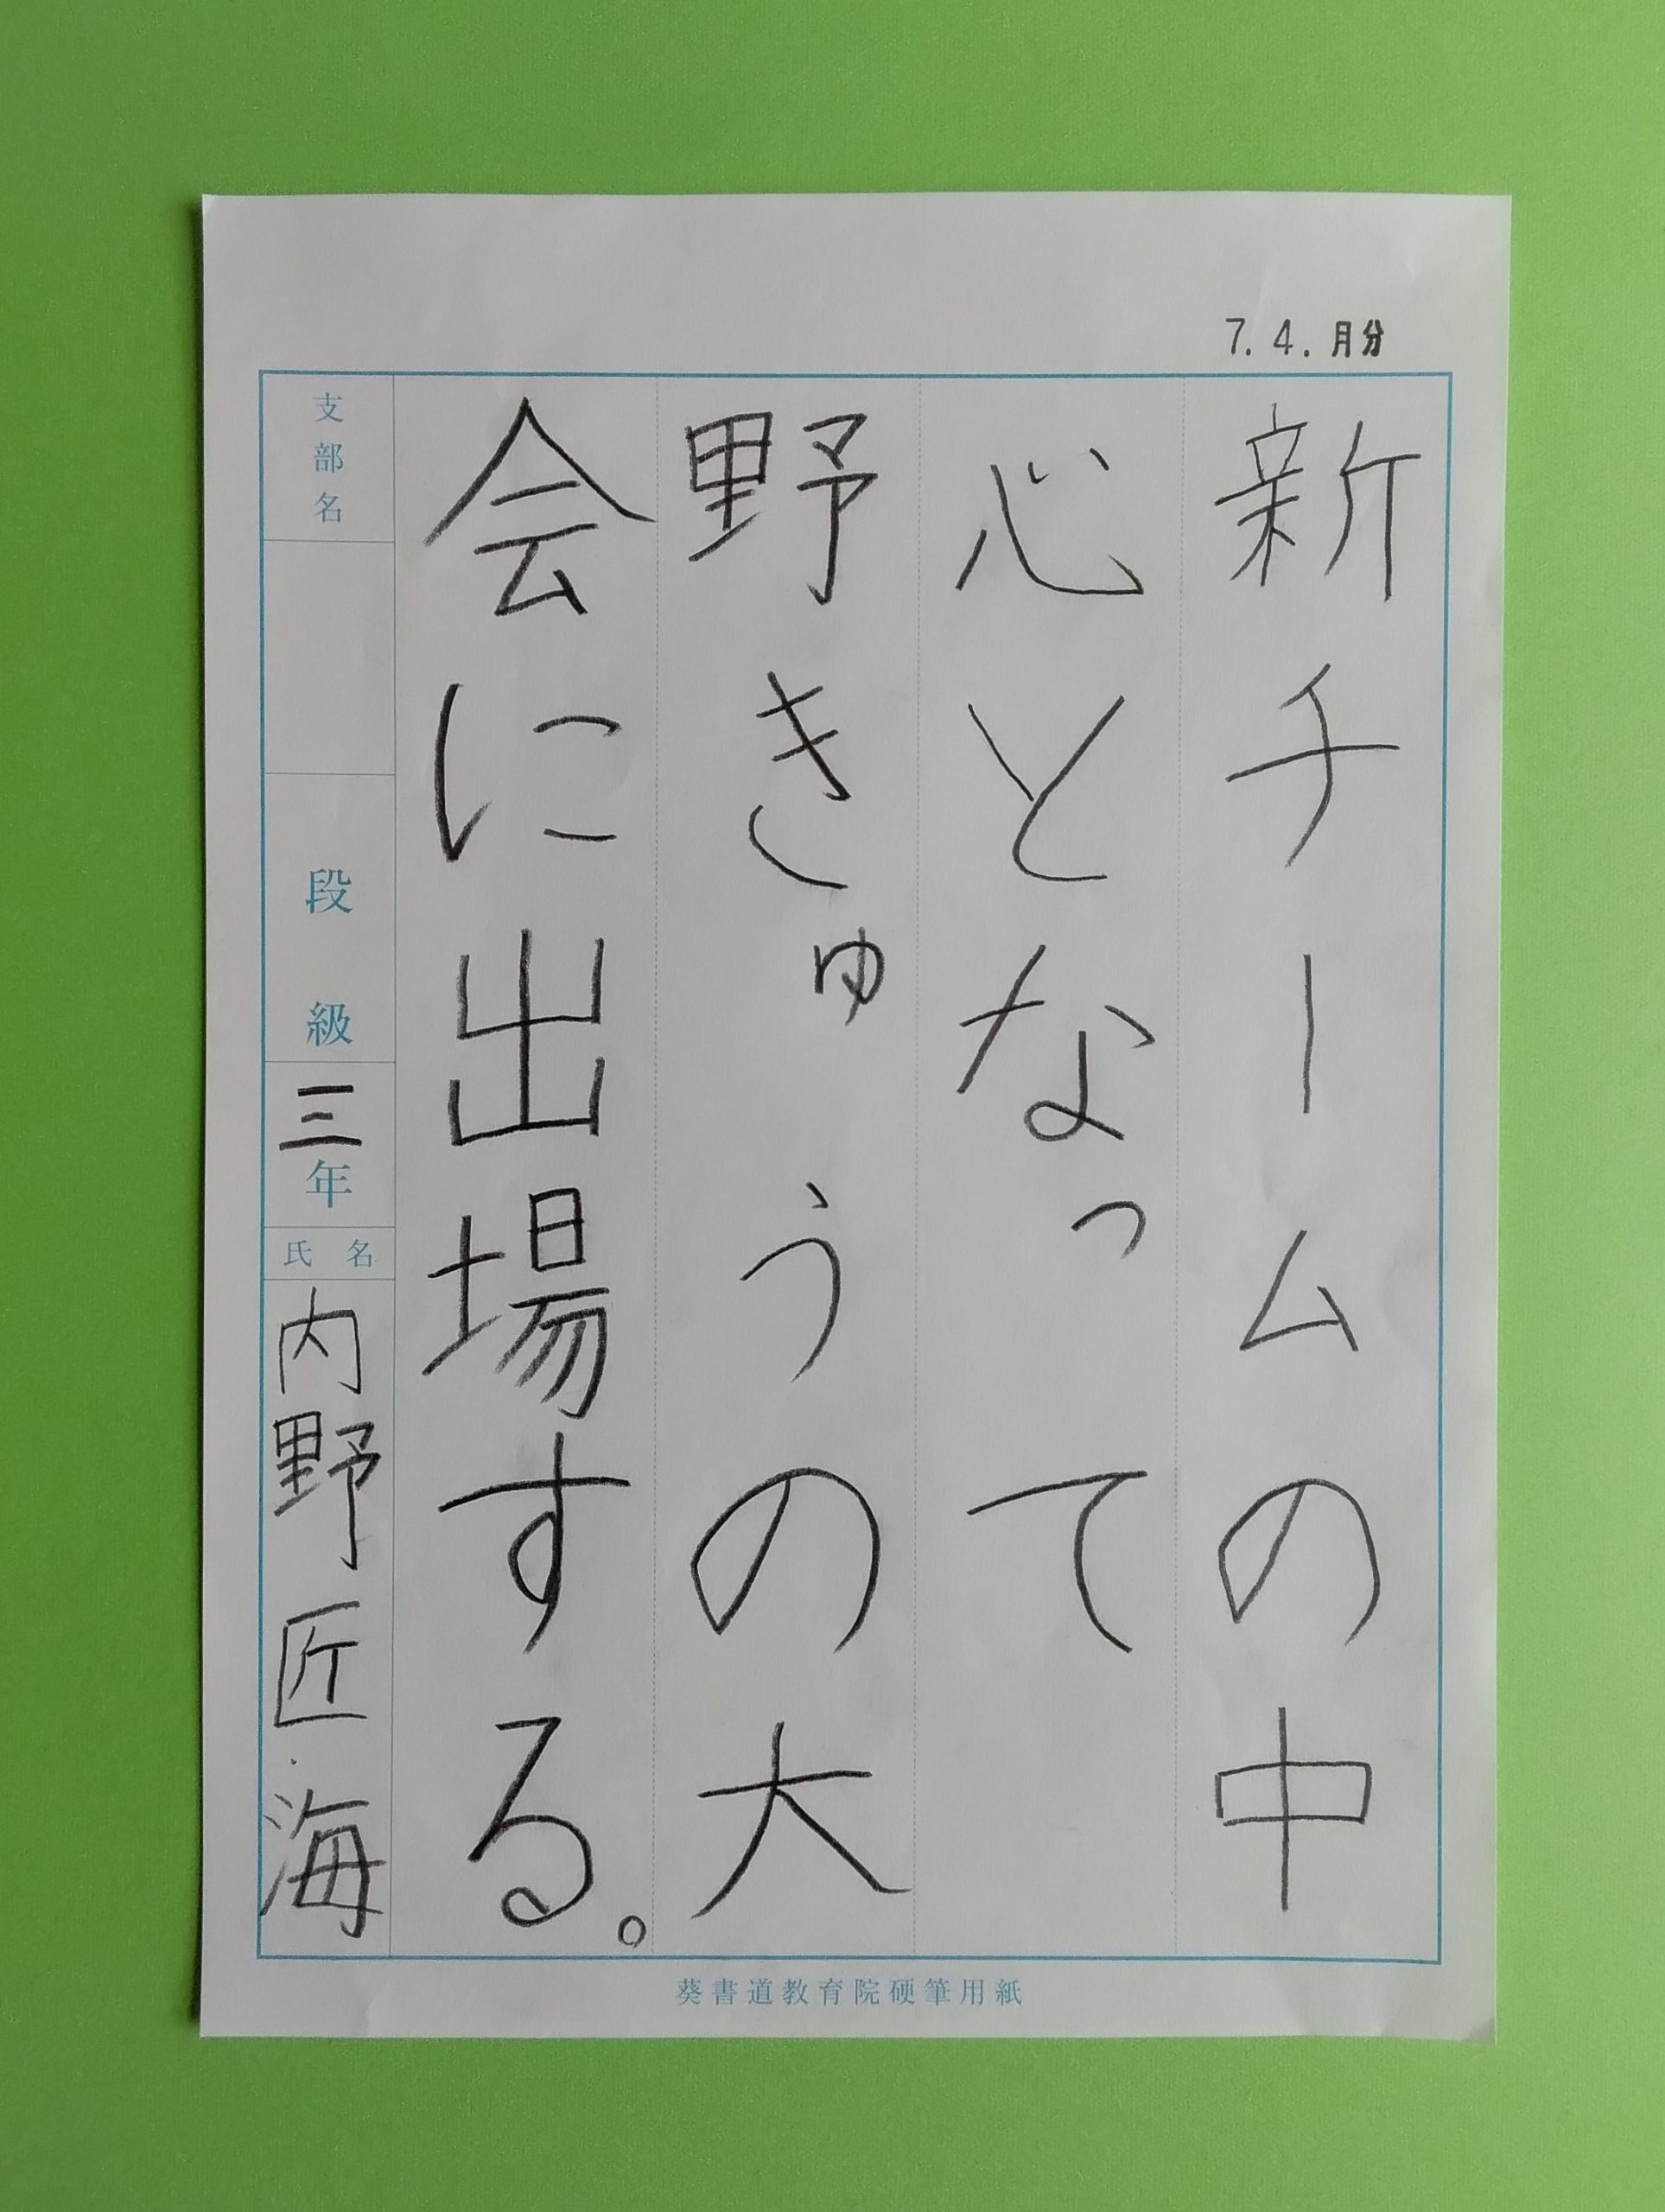 7.4.月分
新チームの中
心となって
野きゅうの大
会に出場する。
支部名
段級
三年
氏名
内野匠海
葵書道教育院硬筆用紙